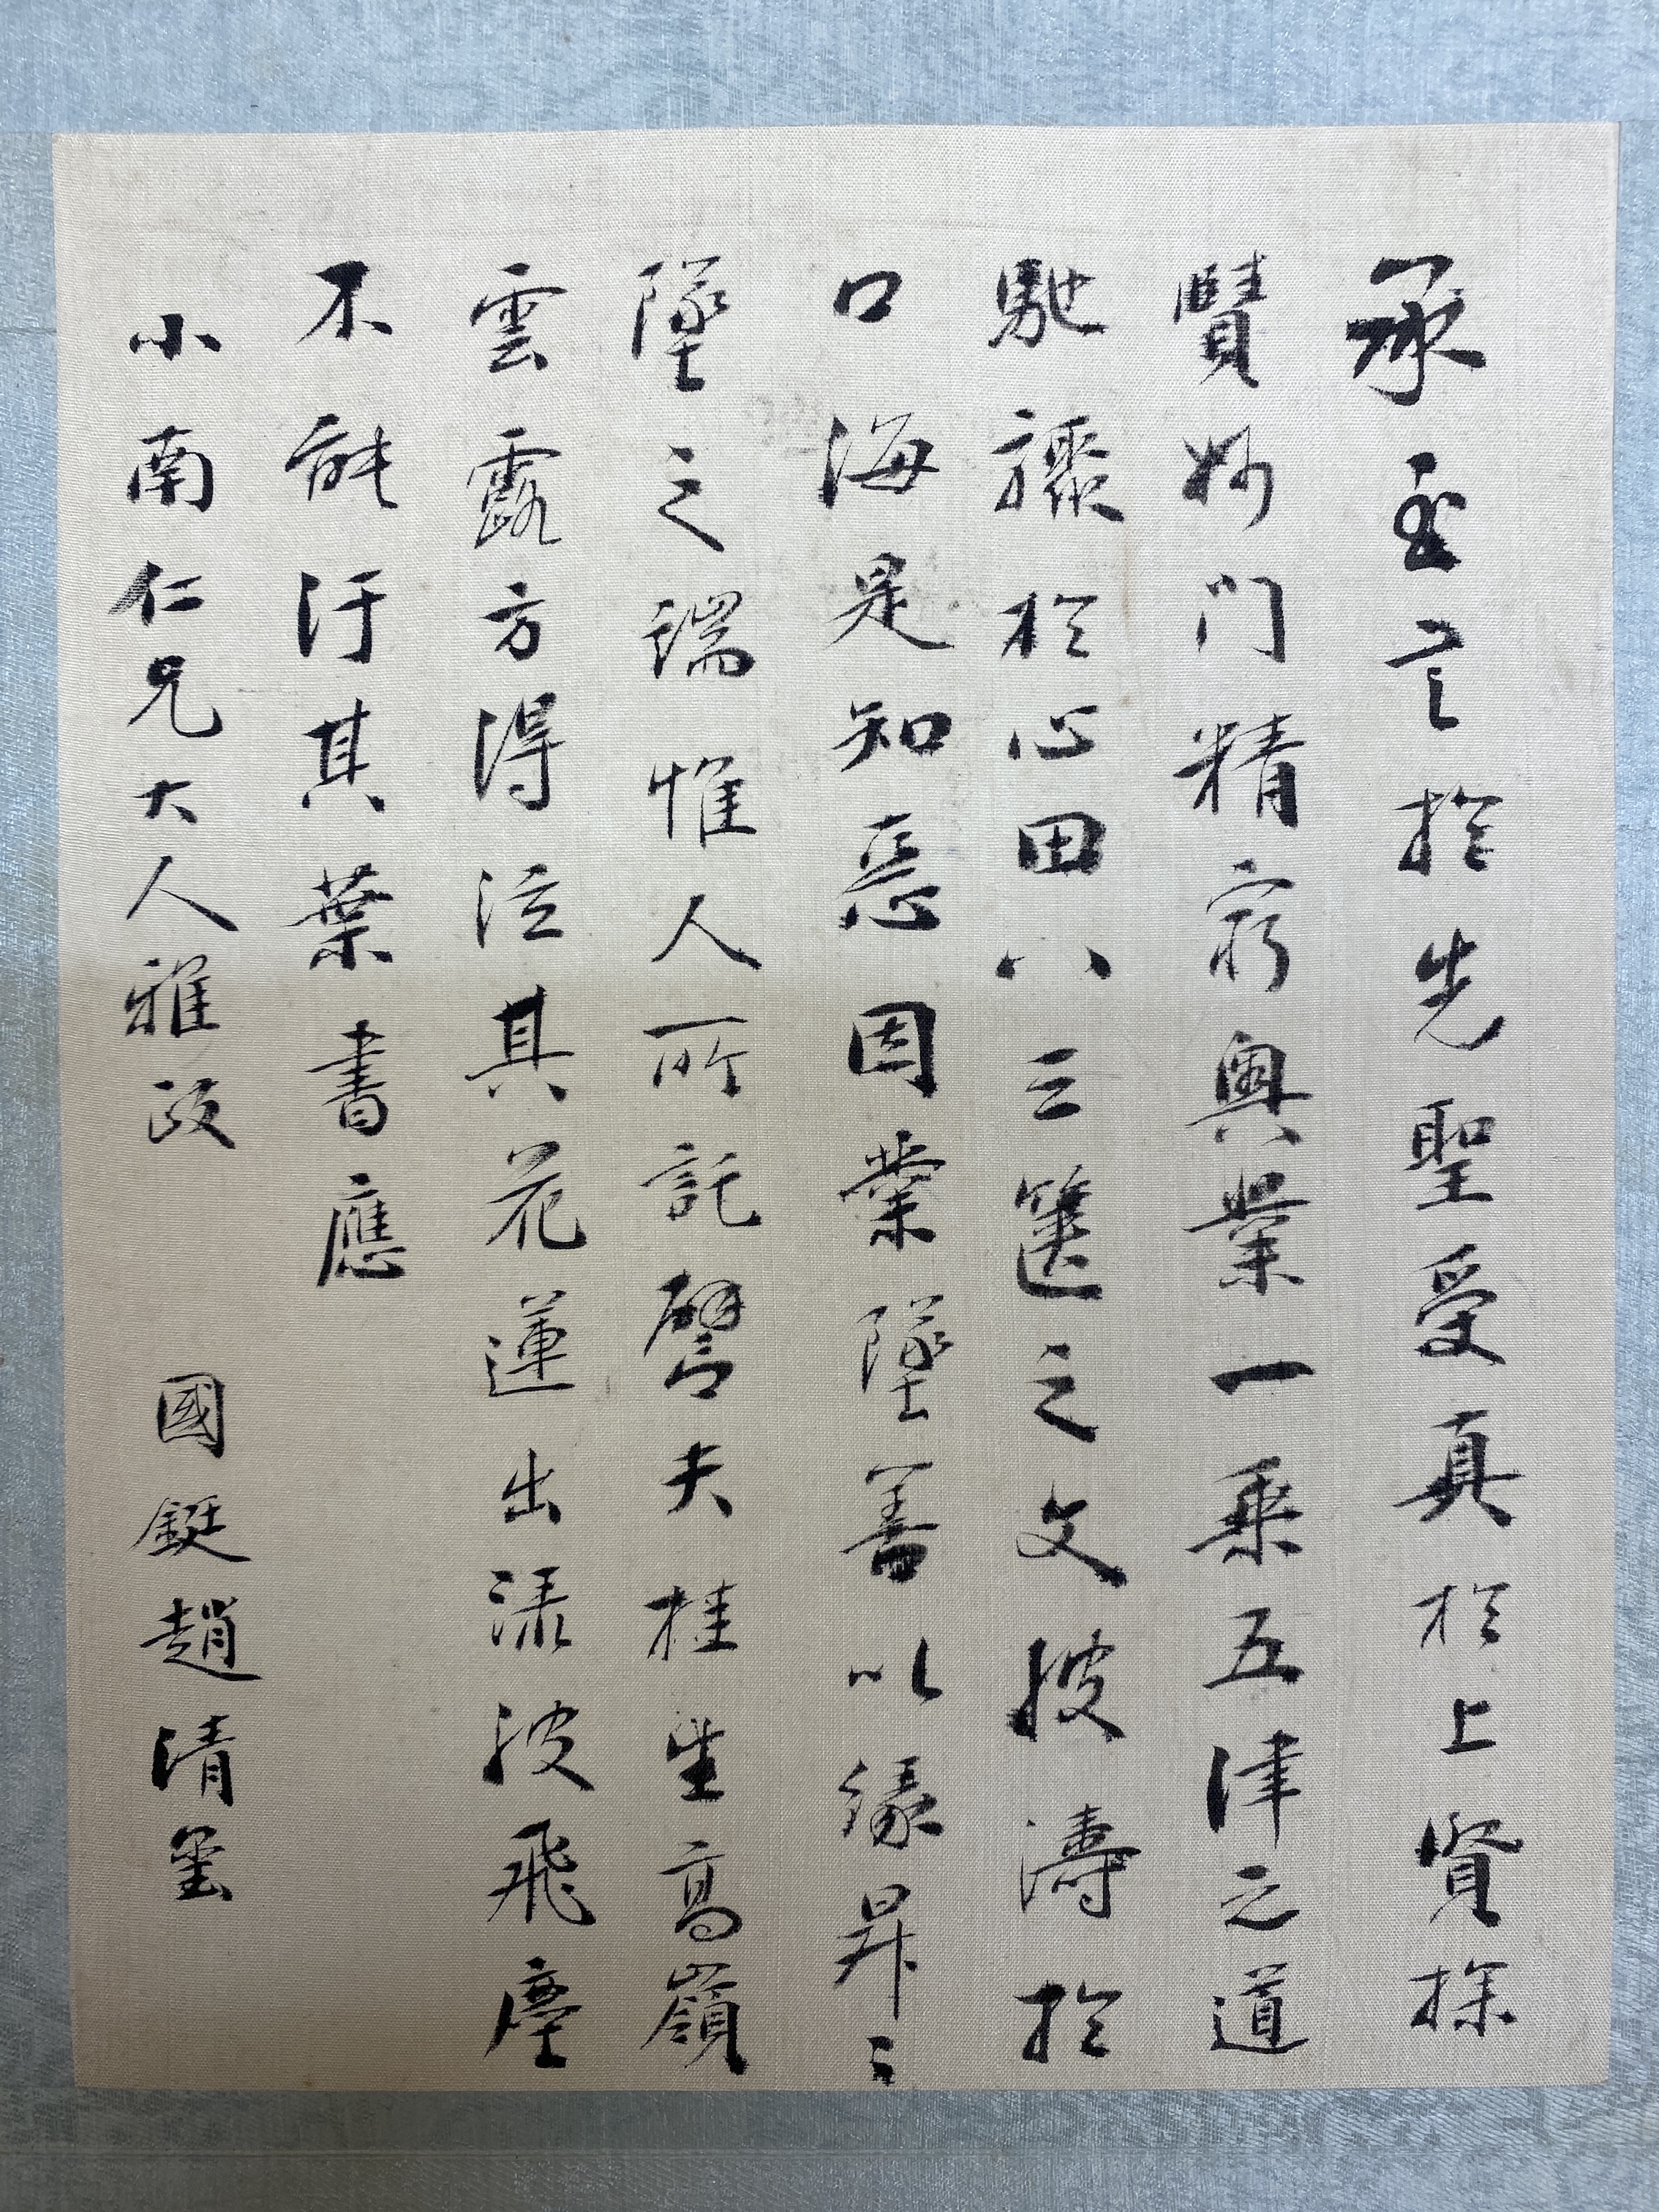 承至言於先聖受真於上賢探
賾妙門精窮奧業一乘五津之道
馳驟於心田八三篋之文波濤於
口海是知惡因業墜善以緣昇〻
墜之端惟人所託譬夫桂生高嶺
雲露方得泫其花蓮出淥波飛塵
不能汙其葉書應
小南仁兄大人雅政 國鋌趙清